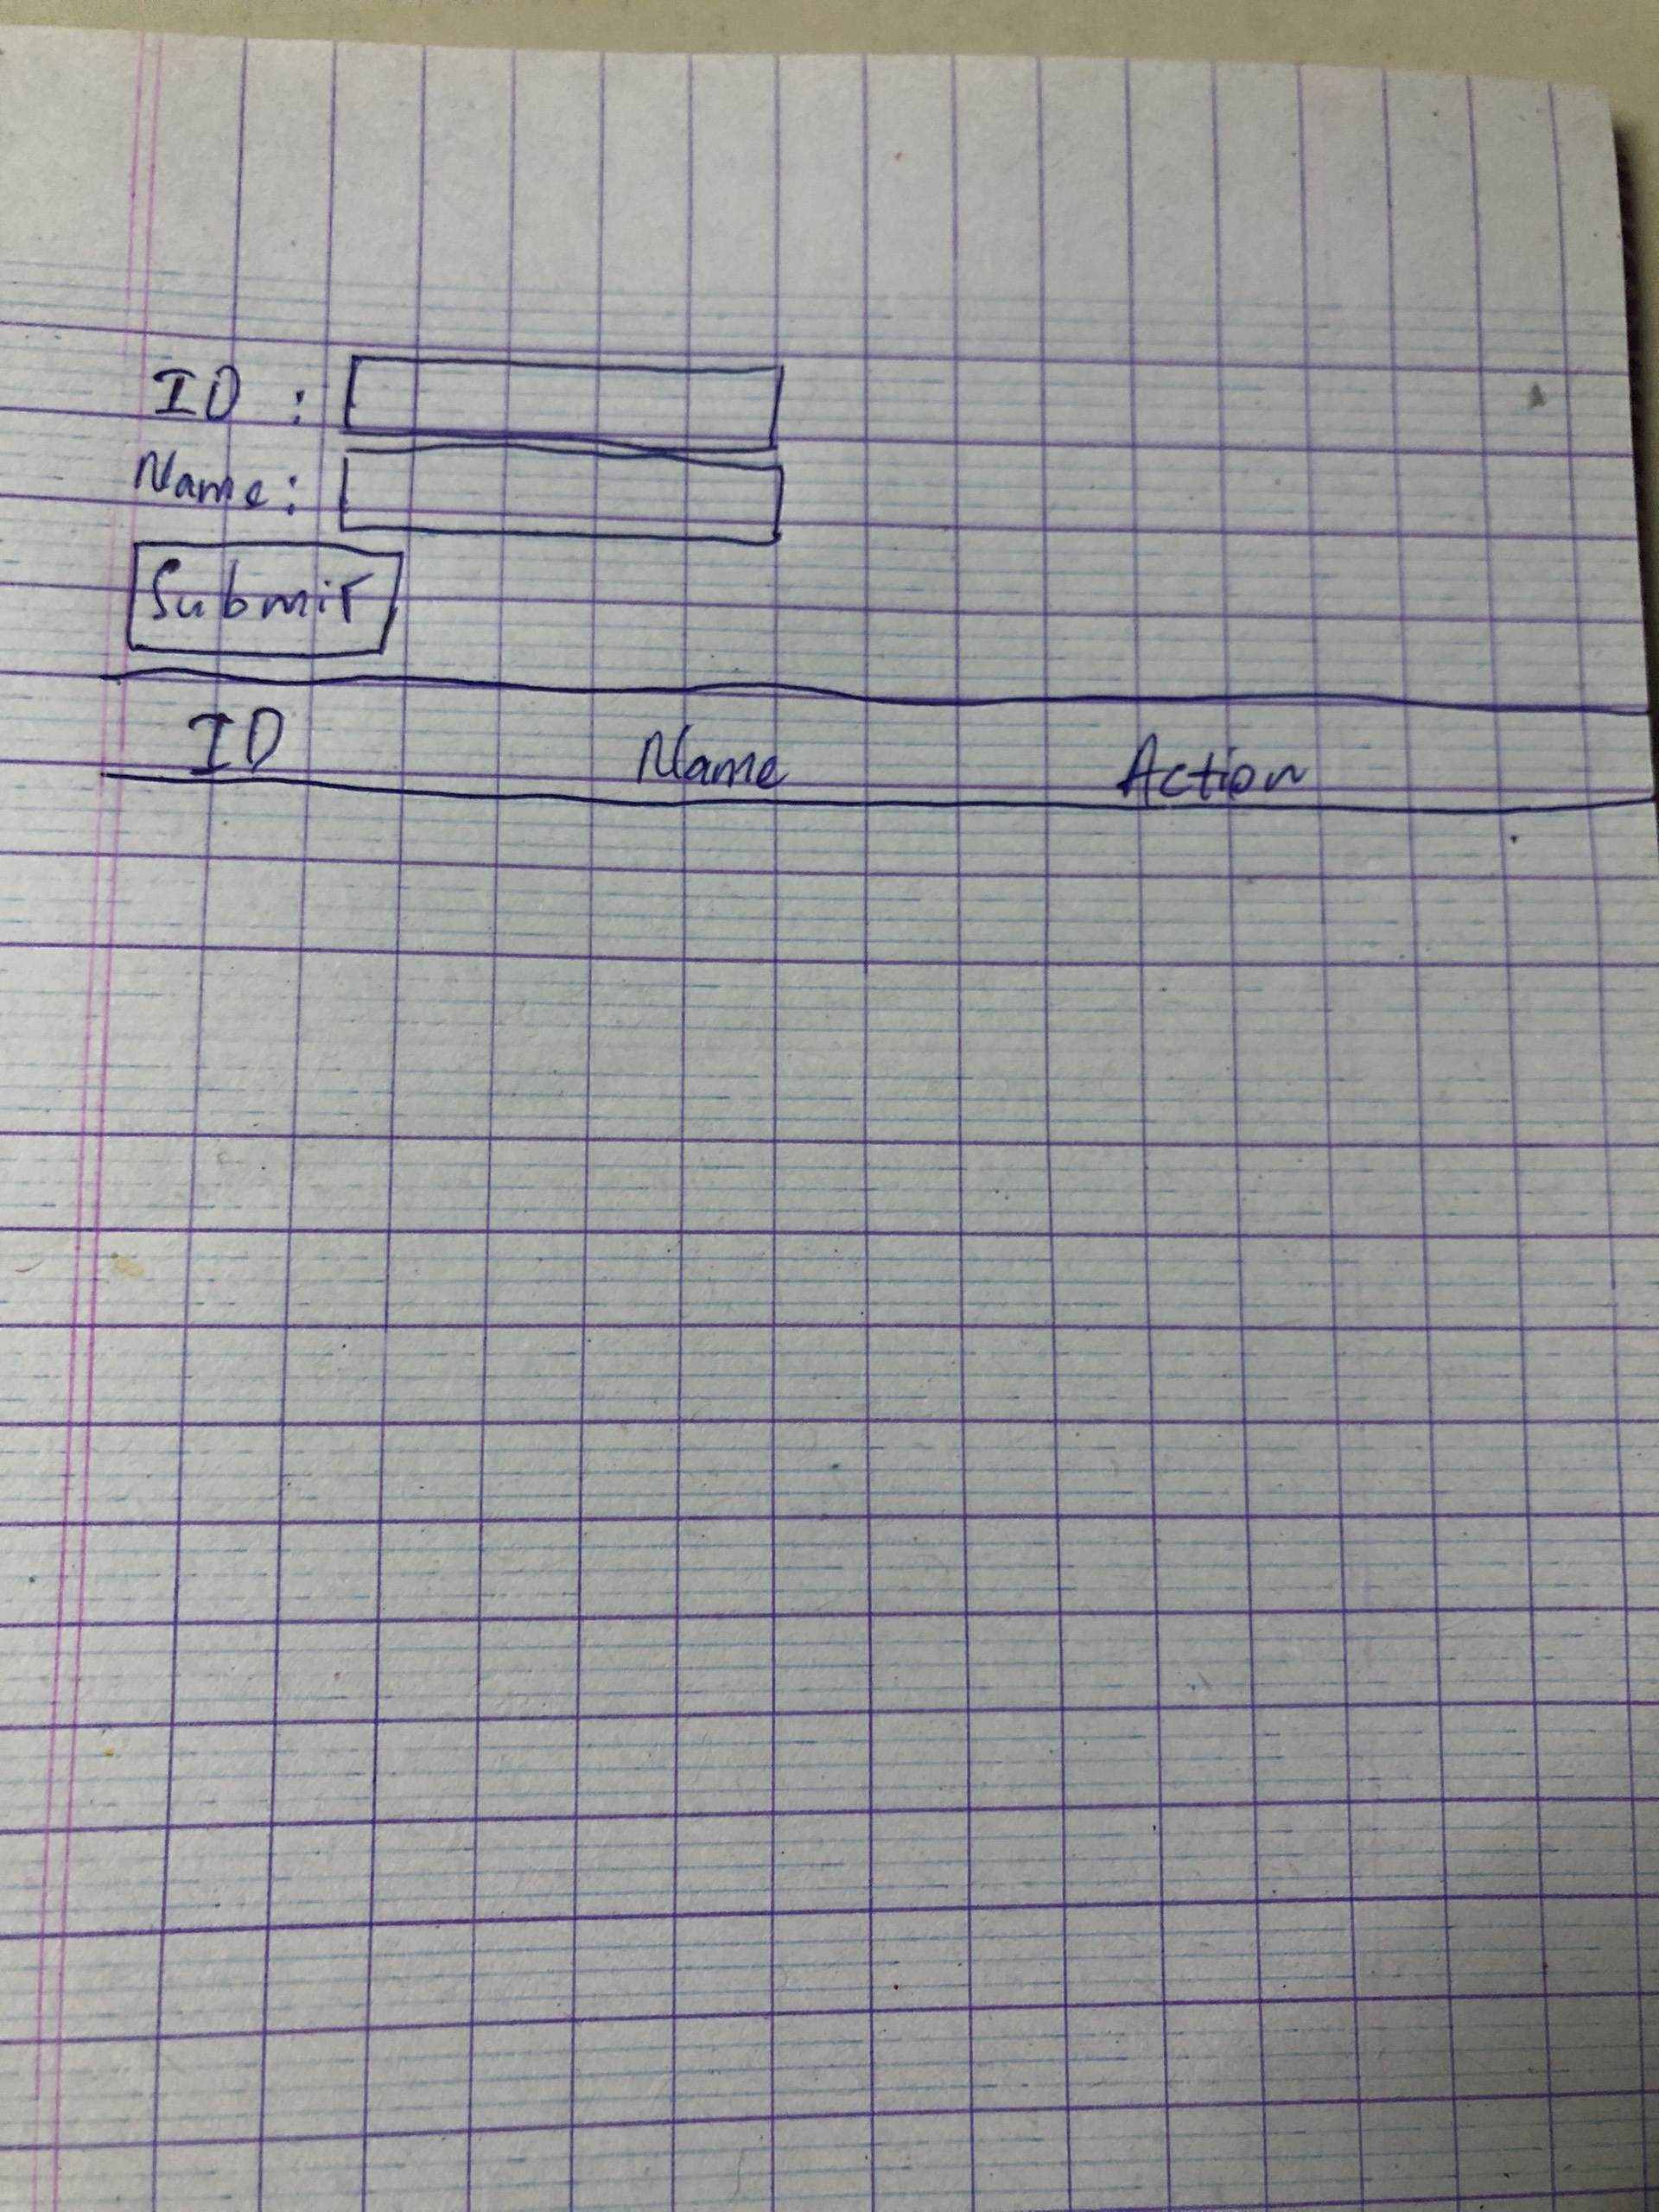 ID :
Name:
Submit
ID Name Action